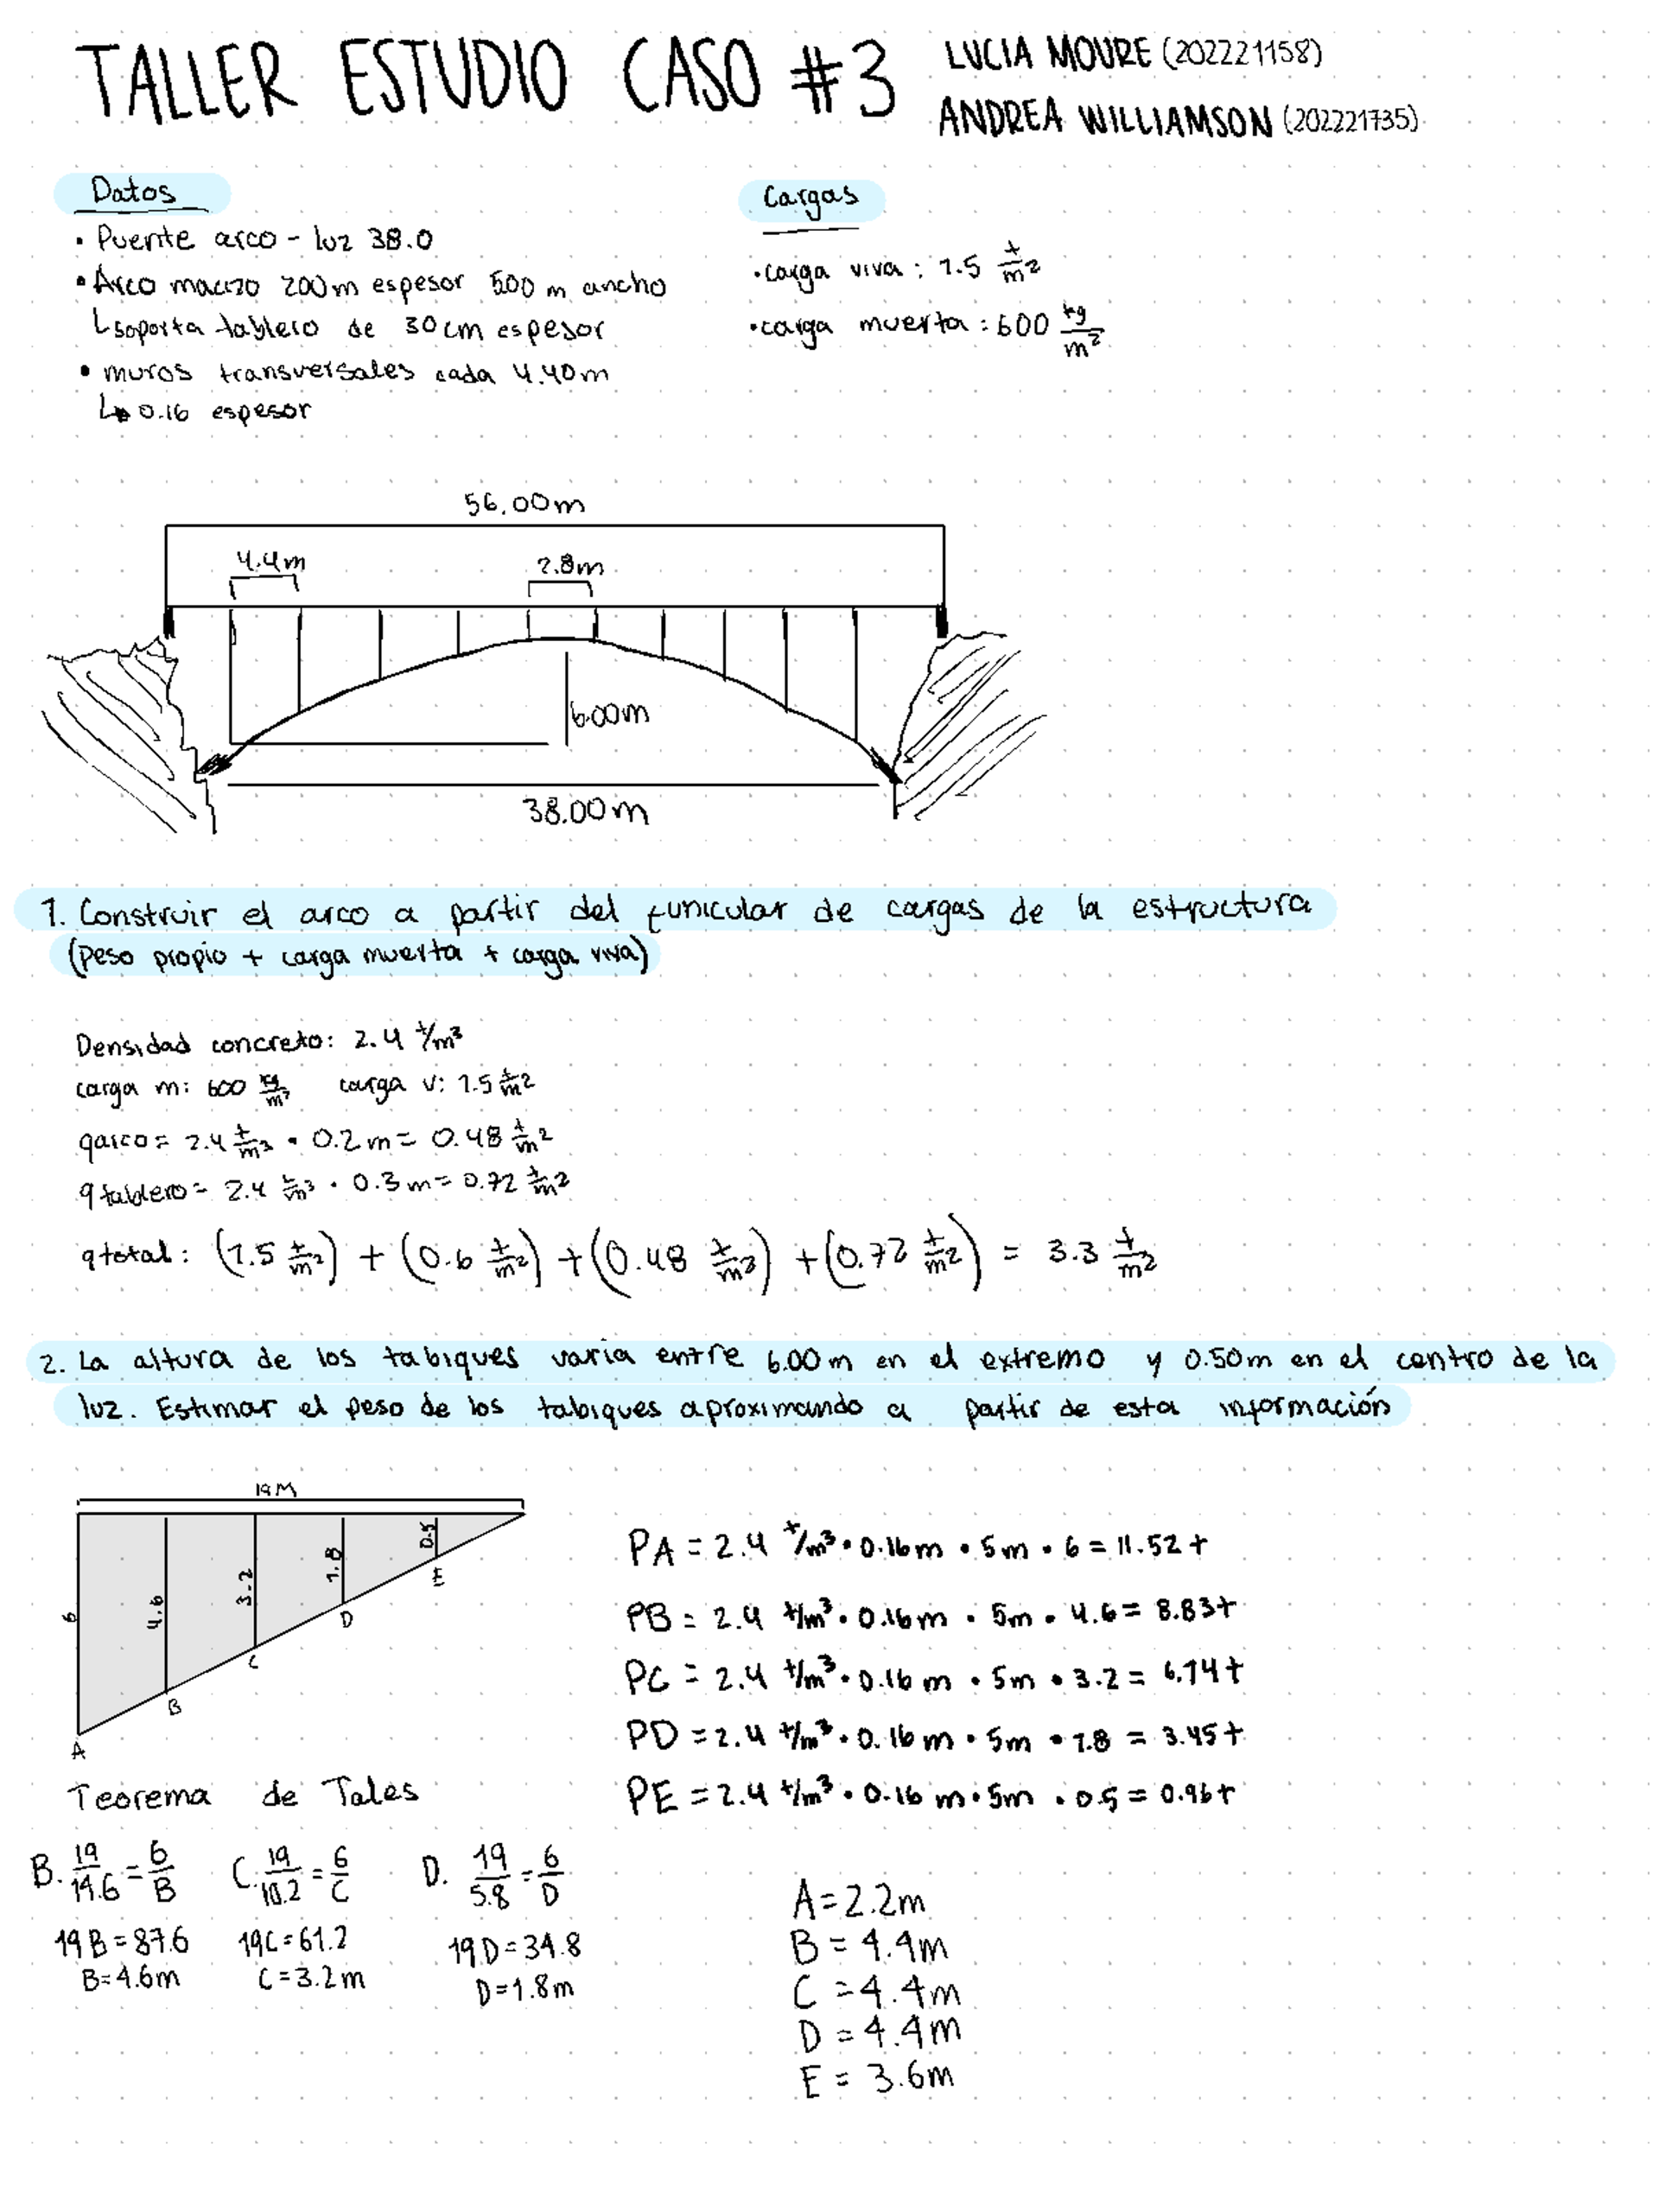 TALLER ESTUDIO CASO #3
LUCIA MOURE (202221158)
ANDREA WILLIAMSON (202221735)
Datos
• Puente arco - luz 38.0
• Arco macizo 200m espesor 500 m ancho
↳ soporta tablero de 30cm espesor
• muros transversales cada 4.40m
↳ 0.16 espesor
Cargas
• carga viva: 1.5 t/m²
• carga muerta: 600 kg/m²
56.00m
4.4m
2.8m
6.00m
38.00m
1. Construir el arco a partir del funicular de cargas de la estructura
(peso propio + carga muerta + carga viva)
Densidad concreto: 2.4 t/m³
carga m: 600 kg/m² carga v: 1.5 t/m²
qarco = 2.4 t/m³ • 0.2m = 0.48 t/m²
qtablero = 2.4 t/m³ • 0.3m = 0.72 t/m²
qtotal: (1.5 t/m²) + (0.6 t/m²) + (0.48 t/m²) + (0.72 t/m²) = 3.3 t/m²
2. La altura de los tabiques varia entre 6.00m en el extremo y 0.50m en el centro de la
luz. Estimar el peso de los tabiques aproximando a partir de esta información
19M
6
4.6
3.2
1.8
0.5
A
B
C
D
E
PA = 2.4 t/m³ • 0.16m • 5m • 6 = 11.52t
PB = 2.4 t/m³ • 0.16m • 5m • 4.6 = 8.83t
PC = 2.4 t/m³ • 0.16m • 5m • 3.2 = 6.14t
PD = 2.4 t/m³ • 0.16m • 5m • 1.8 = 3.45t
PE = 2.4 t/m³ • 0.16m • 5m • 0.5 = 0.96t
Teorema de Tales
B. 19/14.6 = 6/B
19B = 87.6
B = 4.6m
C. 19/10.2 = 6/C
19C = 61.2
C = 3.2m
D. 19/5.8 = 6/D
19D = 34.8
D = 1.8m
A = 2.2m
B = 4.4m
C = 4.4m
D = 4.4m
E = 3.6m